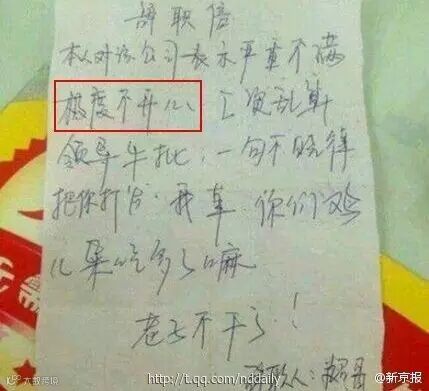 辞职信
本人对该公司表示严重不满
极度不开心、工资乱算
领导牛批、一句不晓得
把你打发、我草、你们鸡
儿屎吃多了嘛
老子不干了！
辞职人：哥
http://t.qq.com/nddaily
@新京报